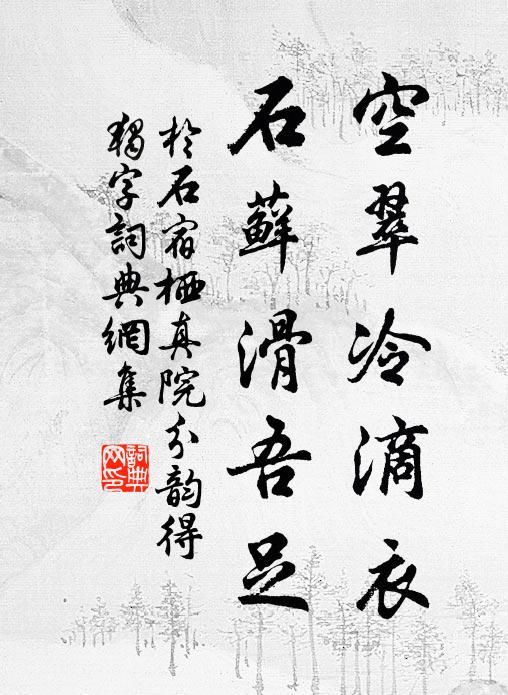 空翠冷滴衣
石蘚滑吾足
於石宿栖真院分韵得
獨字詞典網集
詞典
网印